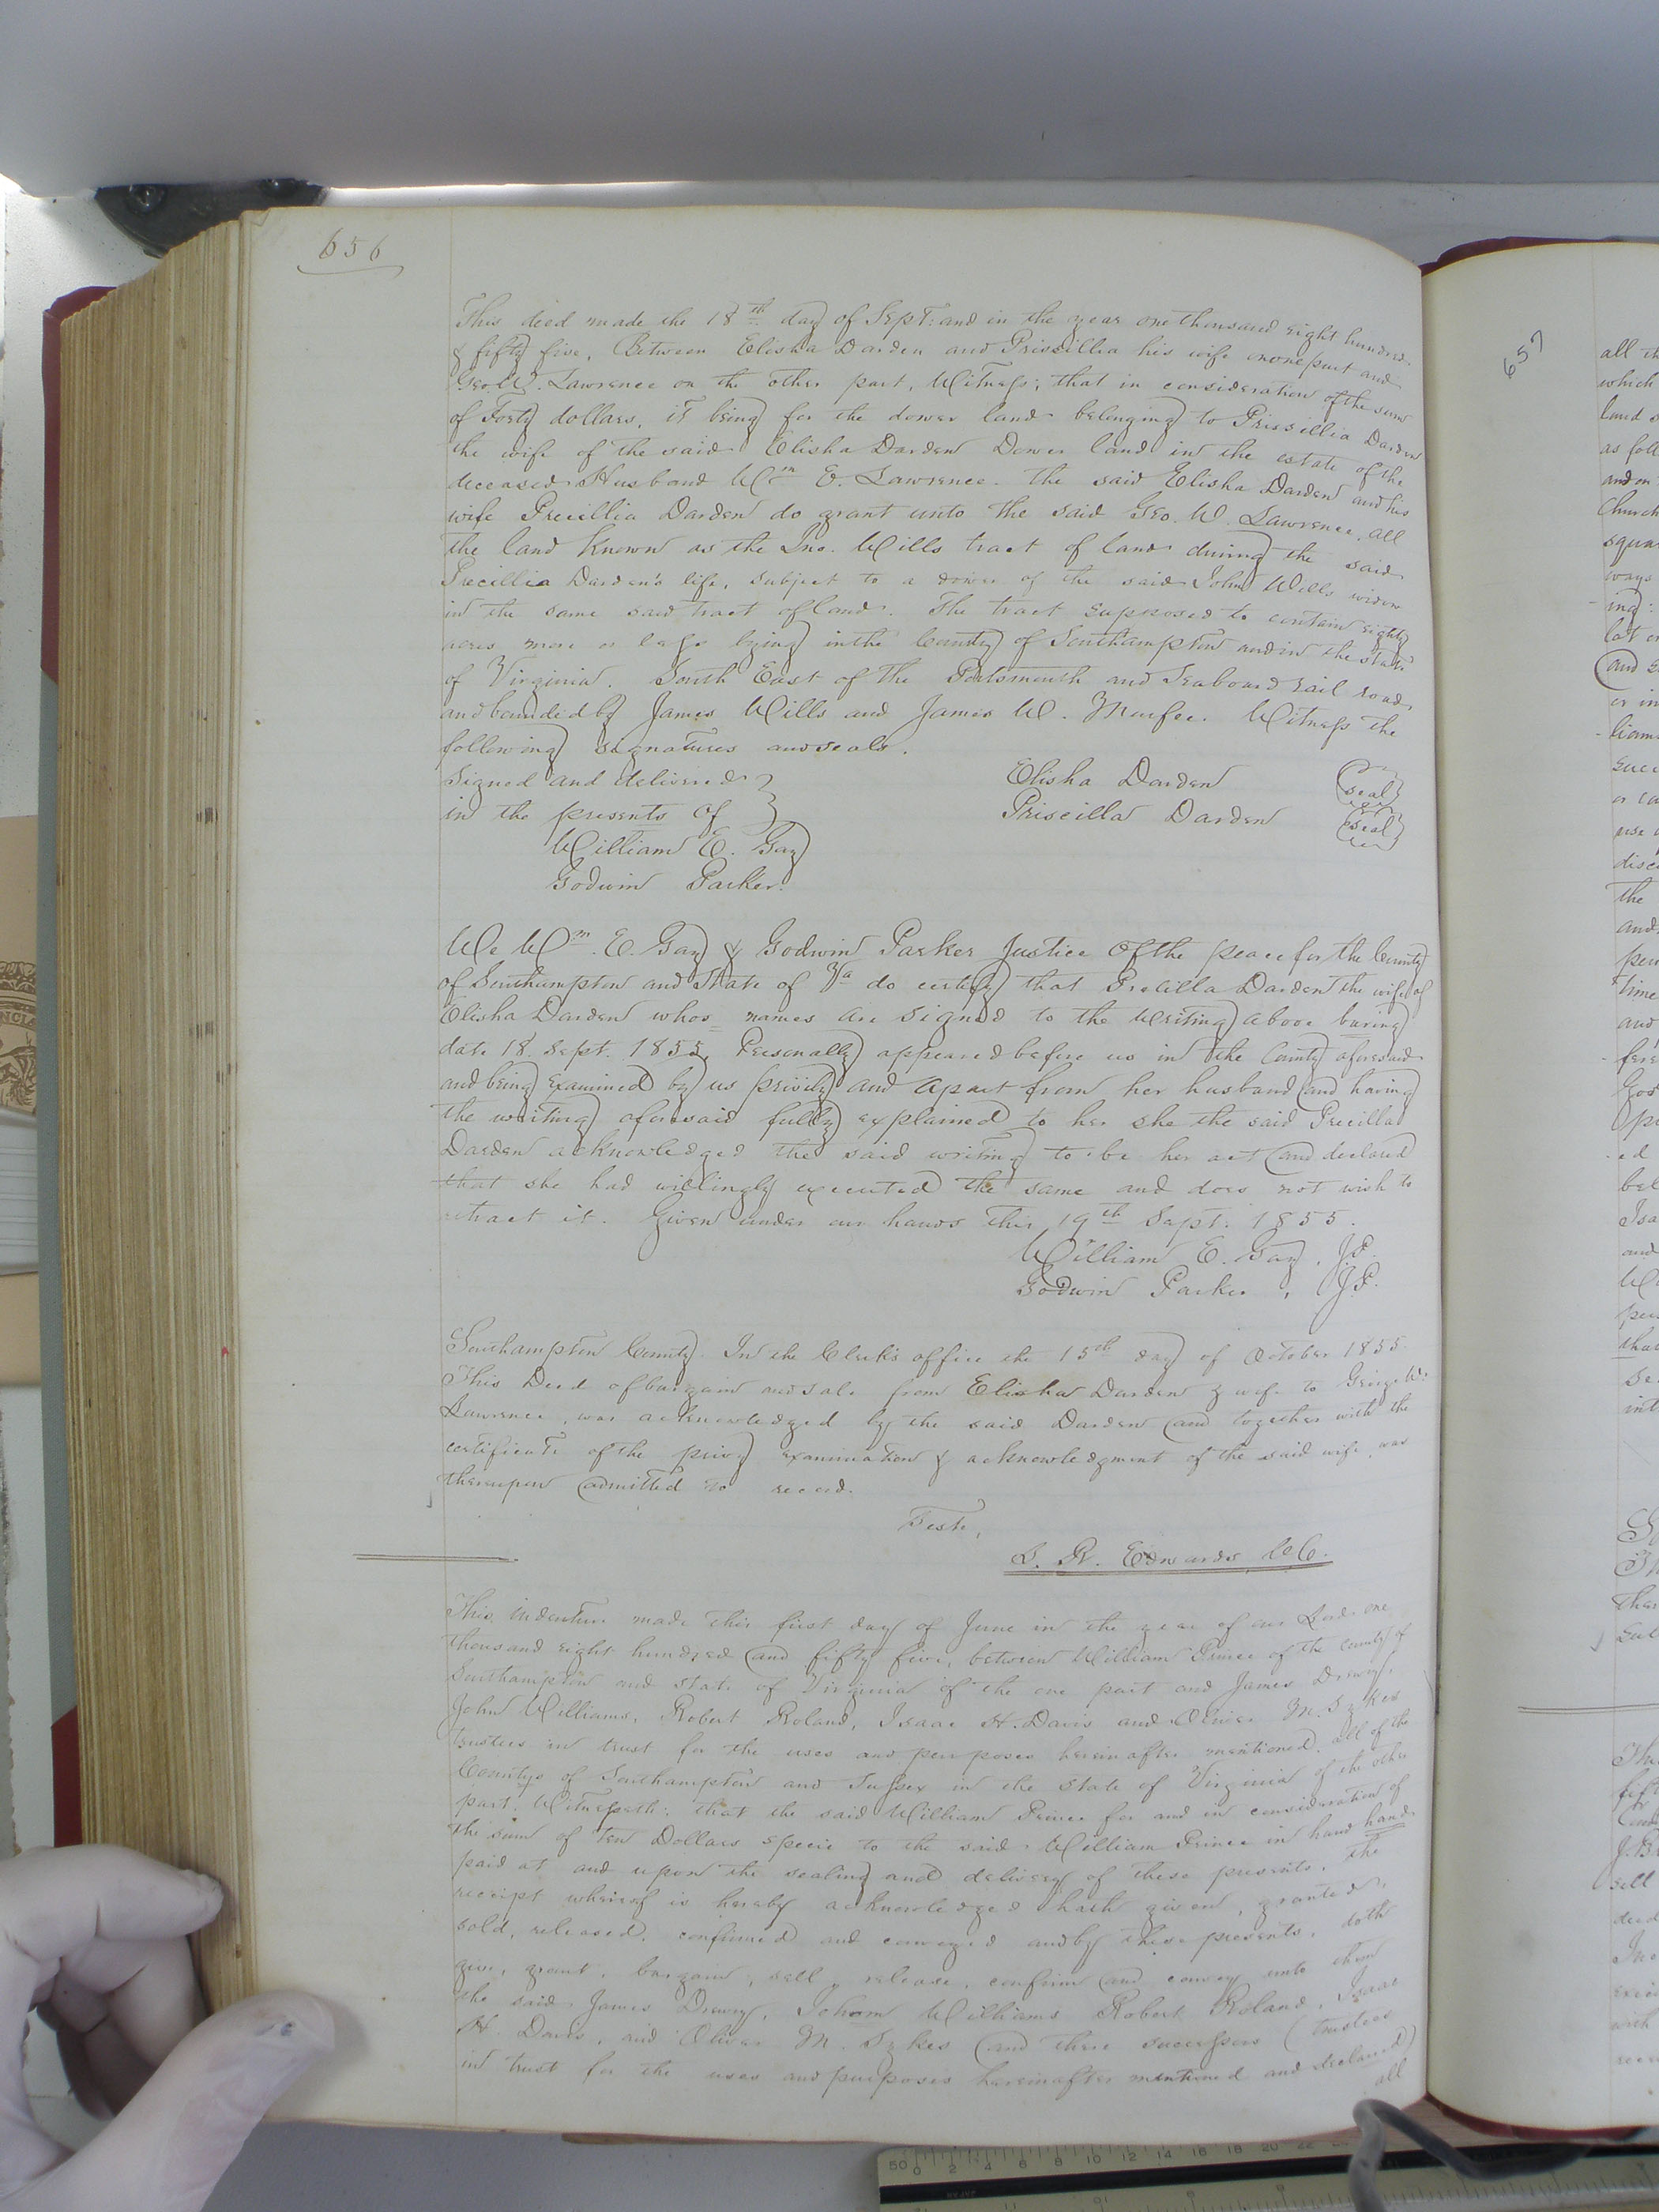 656
This deed made the 18th day of Sept: and in the year one thousand eight hundred
& fifty five, Between Elisha Darden and Priscillia his wife on one part and
Geo W. Lawrence on the other part, Witness; that in consideration of the sum
of Forty dollars, it being for the dower land belonging to Prissillia Darden
the wife of the said Elisha Darden Dower land in the estate of the
deceased Husband Wm E. Lawrence. The said Elisha Darden and his
wife Precillia Darden do grant unto the said Geo. W. Lawrence, all
the land Known as the Jno. Wills tract of land during the said
Precillia Darden's life, subject to a dower of the said John Wills widow
in the same said tract of land. The tract supposed to contain eighty
acres more or less lying in the County of Southampton and in the state
of Virginia. South East of the Portsmouth and Seaboard rail road
and bounded by James Wills and James W. Murfee. Witness the
following signatures and seals.
Signed and delivered
in the presents of
William E. Gay
Godwin Parker.
Elisha Darden (seal)
Priscilla Darden (seal)
We Wm. E. Gay & Godwin Parker Justice Of the peace for the County
of Southampton and State of Va do certify that Precilla Darden the wife of
Elisha Darden whos names are signed to the writing above baring
date 18. Sept. 1855, Personally appeared before us in the County aforesaid
and being examined by us privily and apart from her husband and having
the writing aforesaid fully explained to her she the said Precilla
Darden acknowledged the said writing to be her act and declared
that she had willingly executed the same and does not wish to
retract it. Given under our hands this 19th Sept. 1855.
William E. Gay, J.P.
Godwin Parker, J.P.
Southampton County. In the Clerk's office the 15th day of October 1855.
This Deed of bargain and sale from Elisha Darden & wife to George W.
Lawrence, was acknowledged by the said Darden and together with the
certificate of the privy examination & acknowledgment of the said wife, was
thereupon admitted to record.
Teste,
L. R. Edwards, C.C.
This indenture made this first day of June in the year of our Lord one
thousand eight hundred and fifty five, between William Prince of the county of
Southampton and state of Virginia of the one part and James Drewry,
John Williams, Robert Roland, Isaac H. Davis and Oliver M. Sykes
trustees in trust for the uses and purposes herein after mentioned, all of the
Countys of Southampton and Sussex in the State of Virginia of the other
part. Witnesseth: that the said William Prince for and in consideration of
the sum of Ten Dollars specie to the said William Prince in hand hand
paid at and upon the sealing and delivery of these presents, the
receipt whereof is hereby acknowledged hath given, granted,
sold, released, confirmed and conveyed and by these presents, doth
give, grant, bargain, sell, release, confirm and convey unto them
the said James Drewry, Joham Williams Robert Roland, Isaac
H. Davis, and Oliver M. Sykes and there successors (trustees
in trust for the uses and purposes hereinafter mentioned and declared)
all
657
all th
which
land s
as foll
and on
Church
squa
ways
ing:
lot or
and
or in
liam
succ
use
disc
the
and
per
time
and